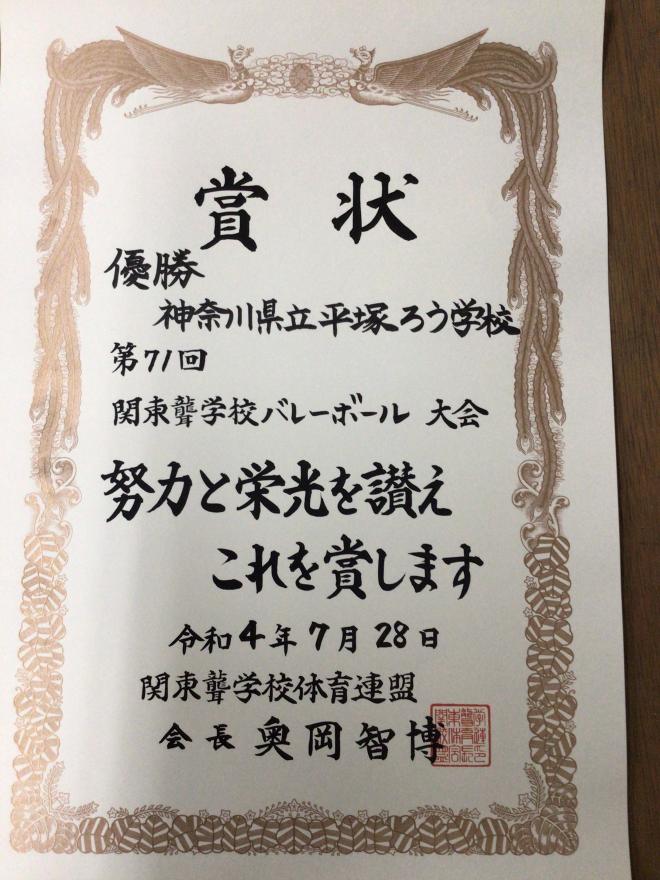 賞状
優勝
神奈川県立平塚ろう学校
第71回
関東聾学校バレーボール 大会
努力と栄光を讃え
これを賞します
令和4年7月28日
関東聾学校体育連盟
会長 奥岡智博